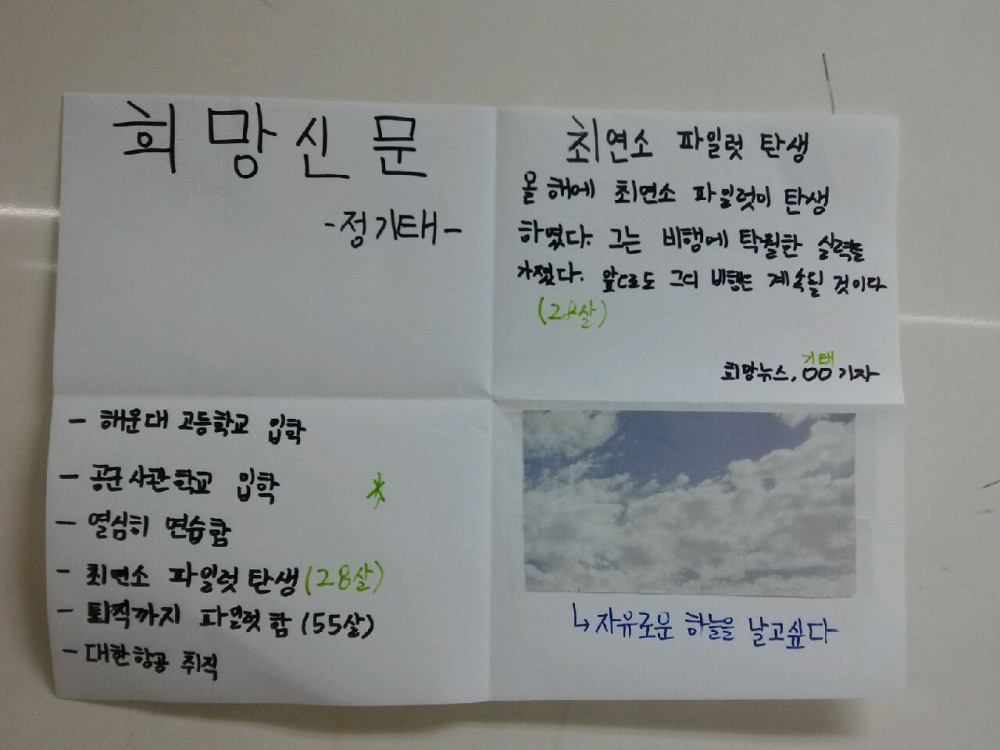 희망신문
-정기태-
최연소 파일럿 탄생
올 해에 최연소 파일럿이 탄생
하였다. 그는 비행에 탁월한 실력을
가졌다. 앞으로도 그의 비행은 계속될 것이다
(28살)
기태
희망뉴스, OO기자
- 해운대 고등학교 입학
- 공군사관학교 입학 *
- 열심히 연습함
- 최연소 파일럿 탄생 (28살)
- 퇴직까지 파일럿 함 (55살)
- 대한항공 취직
↳ 자유로운 하늘을 날고싶다